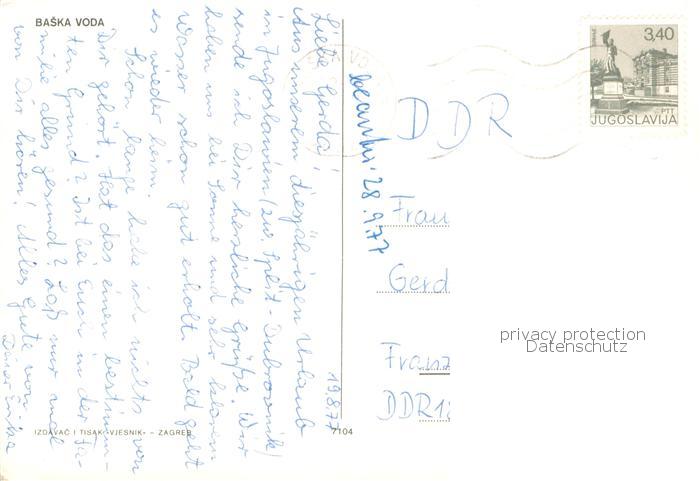 BAŠKA VODA
19.8.77
Liebe Gerda!
Aus unserem diesjährigen Urlaub
in Jugoslawien (zw. Split - Dubrovnik)
sende ich Dir herzliche Grüße. Wir
haben uns bei Sonne und sehr klarem
Wasser schon gut erholt. Bald geht
es wieder heim.
Schon lange habe ich nichts von
Dir gehört. Hat das einen bestimm-
ten Grund? Ist bei Euch in der Fa-
milie alles gesund? Laß nur mal
von Dir hören! Alles Gute von
Deiner Erika
28.9.77
3,40
PTT
JUGOSLAVIJA
DDR
Frau
Gerd
Franz
DDR 1
privacy protection
Datenschutz
IZDAVAČ I TISAK »VJESNIK« – ZAGREB
7104